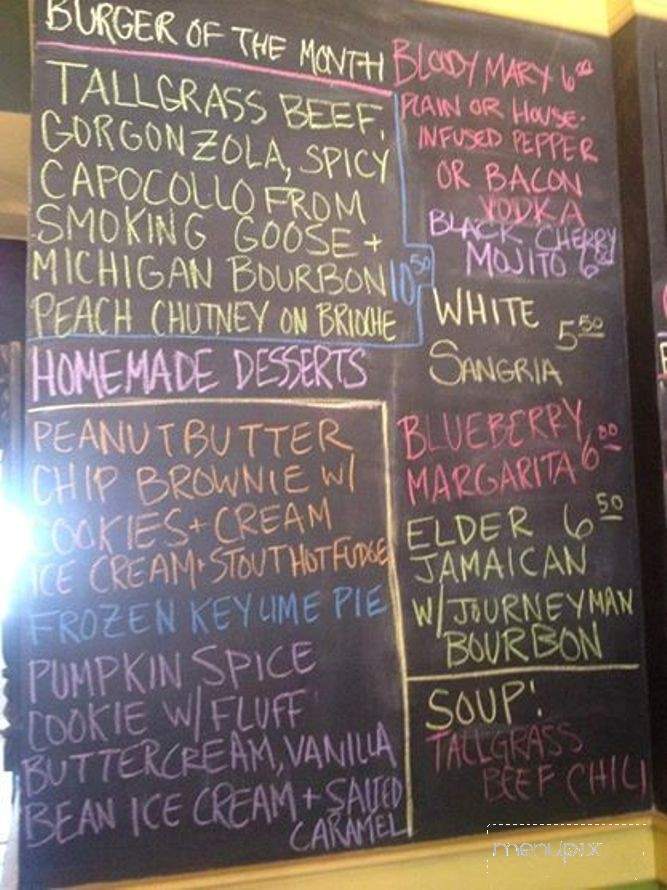 BURGER OF THE MONTH
TALLGRASS BEEF,
GORGONZOLA, SPICY
CAPOCOLLO FROM
SMOKING GOOSE +
MICHIGAN BOURBON 10 50
PEACH CHUTNEY ON BRIOCHE
HOMEMADE DESSERTS
PEANUT BUTTER
CHIP BROWNIE W/
COOKIES + CREAM
ICE CREAM + STOUT HOT FUDGE
FROZEN KEY LIME PIE
PUMPKIN SPICE
COOKIE W/ FLUFF
BUTTERCREAM, VANILLA
BEAN ICE CREAM + SALTED
CARAMEL
BLOODY MARY 6 00
PLAIN OR HOUSE-
INFUSED PEPPER
OR BACON
VODKA
BLACK CHERRY
MOJITO 6 00
WHITE 5 50
SANGRIA
BLUEBERRY
MARGARITA 6 00
ELDER 6 50
JAMAICAN
W/ JOURNEYMAN
BOURBON
SOUP!
TALLGRASS
BEEF CHILI
menupix